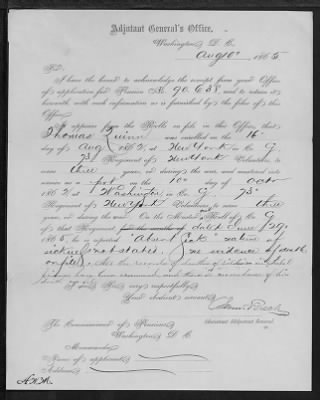 Adjutant General's Office,
Washington, D. C.
Aug 10th 1865
Sir:
I have the honor to acknowledge the receipt from your Office
of application for Pension No. 90.638, and to return it
herewith with such information as is furnished by the files of this
Office.
It appears from the Rolls on file in this Office, that
Thomas Quinn was enrolled on the 16th
day of Aug 1862, at New York in Co. G
73d Regiment of New York Volunteers, to
serve three years, or during the war, and mustered into
service as a pvt on the 10th day of Octo
1862, at Washington in Co. G 73d
Regiment of New York Volunteers, to serve three
years, or during the war. On the Muster Roll of Co. G
of that Regiment, dated June 29,
1865, he is reported "Absent Sick" nature of
sickness not stated. No evidence of death
on file
I am, Sir, very respectfully,
Your obedient servant,
Assistant Adjutant General.
The Commissioner of Pensions,
Washington, D. C.
Memoranda:
Name of applicant,
Address,